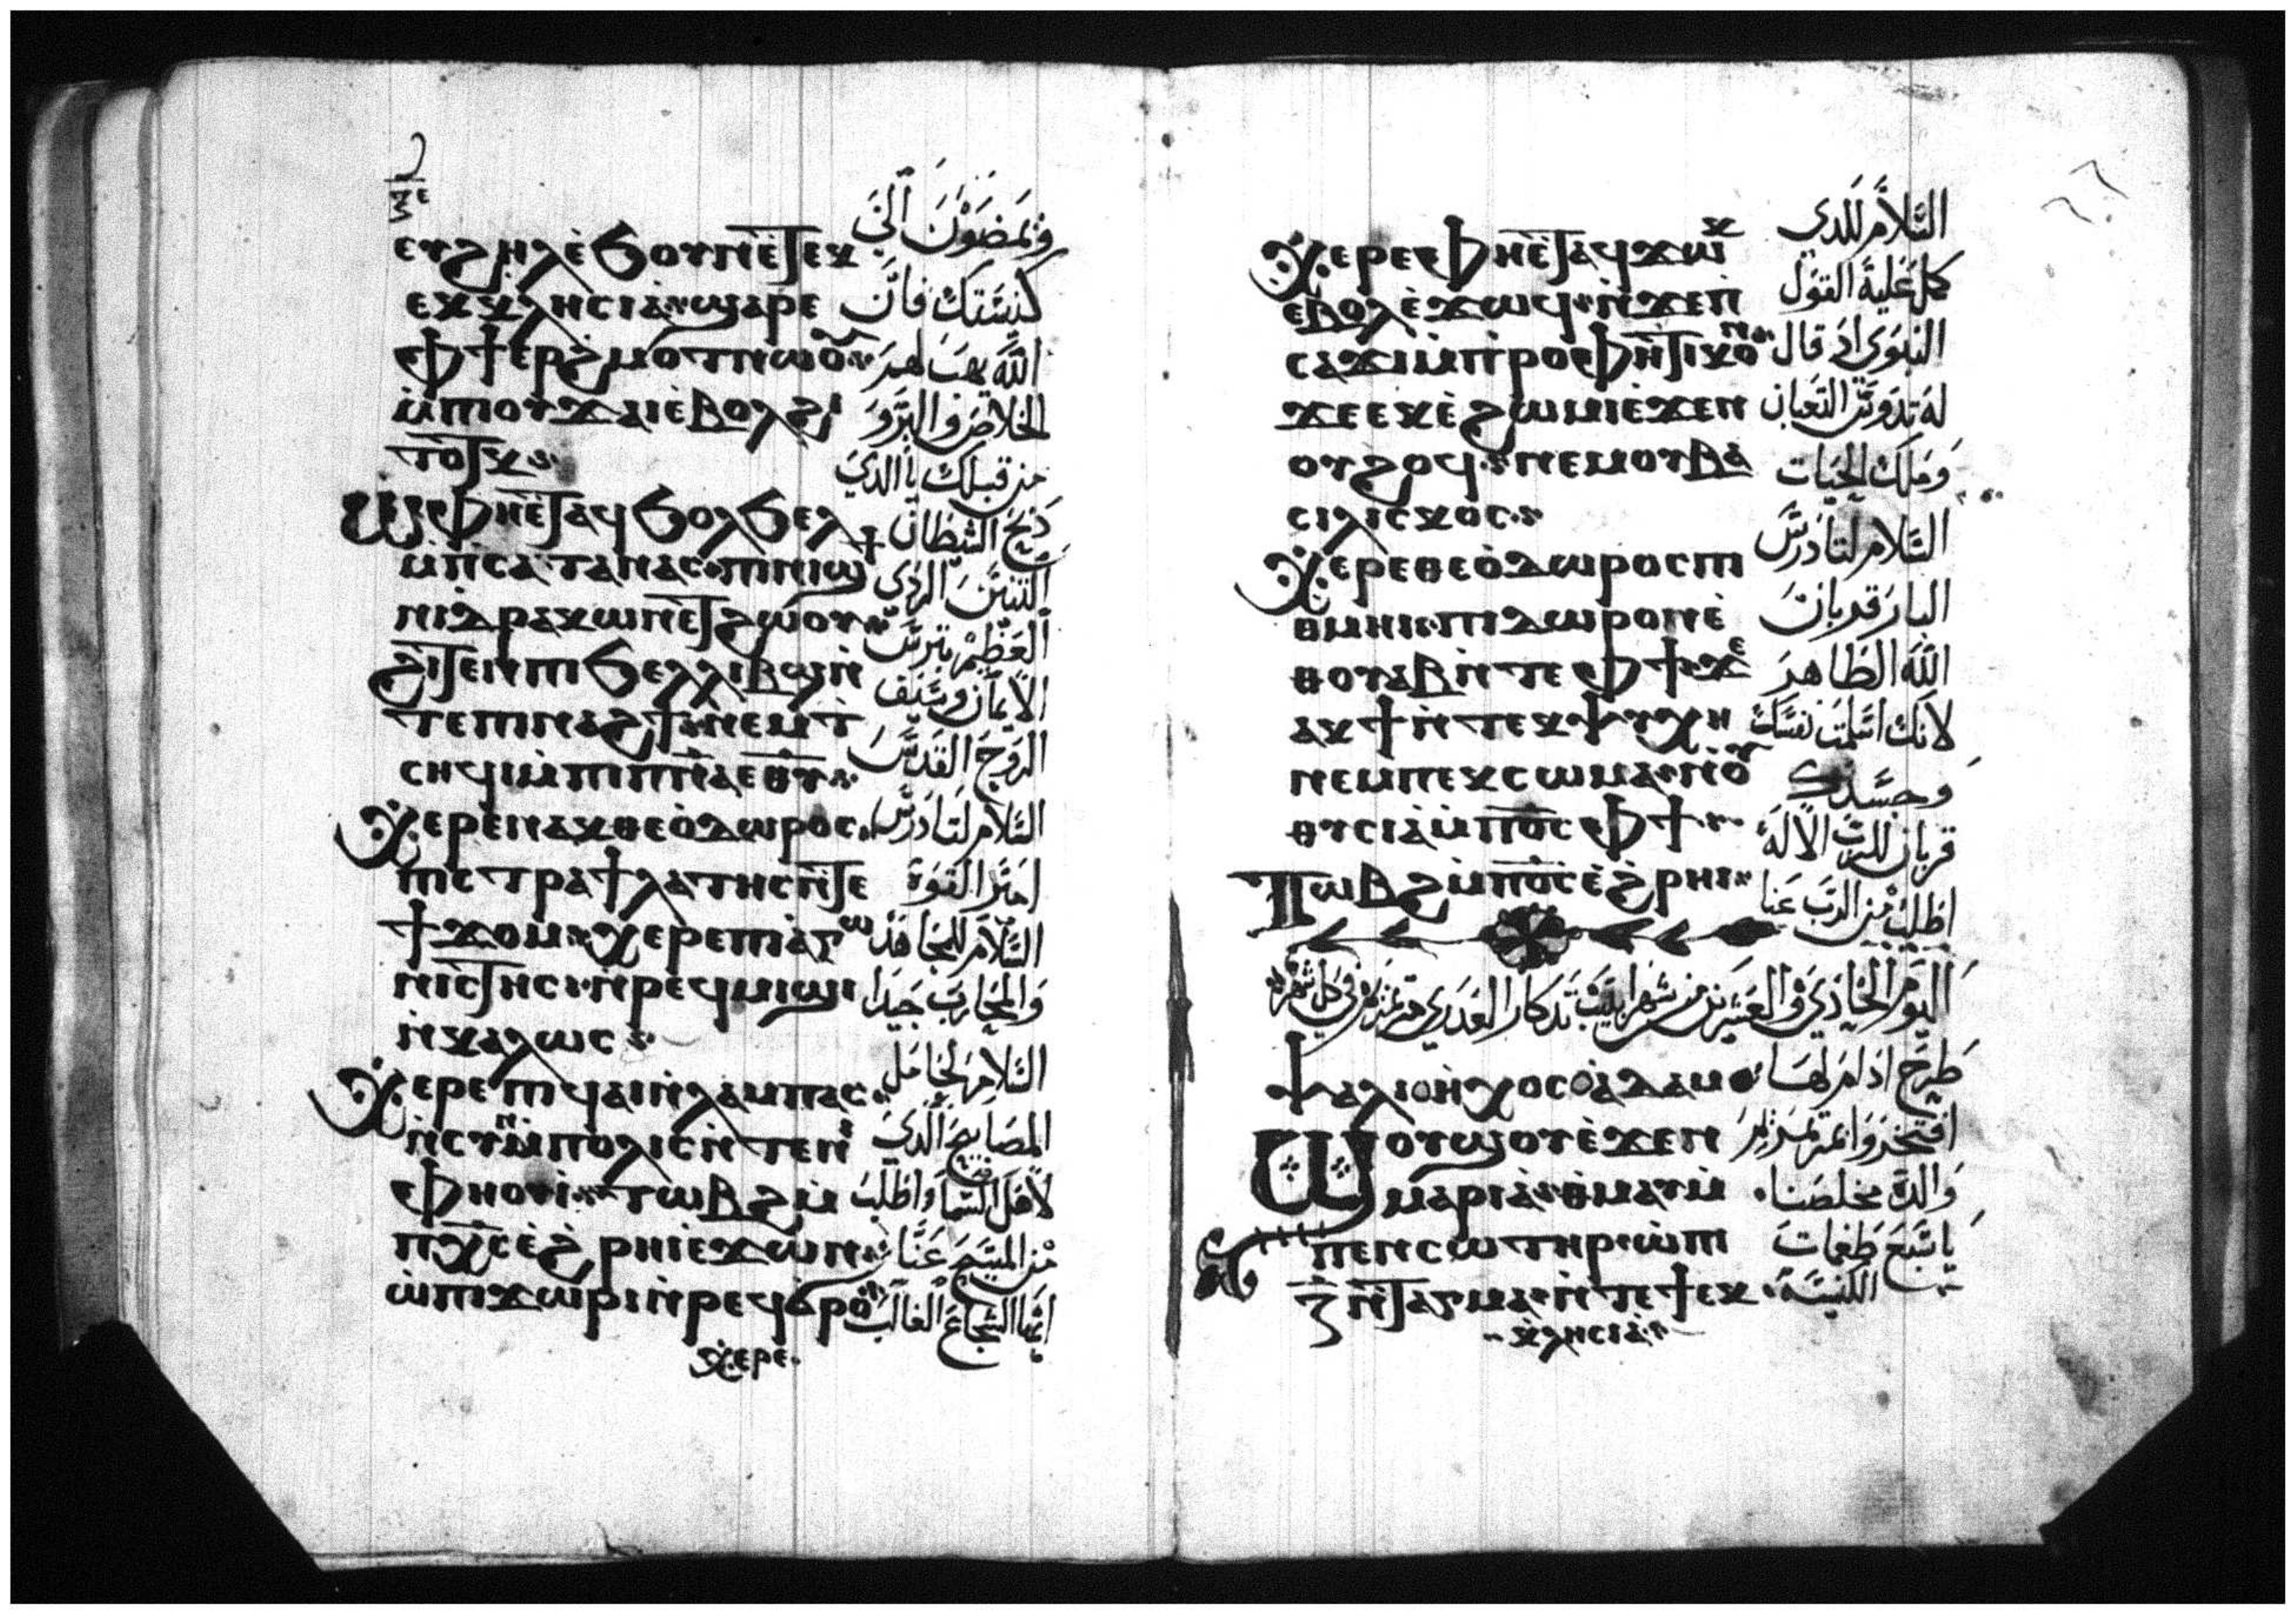 ⲉⲩϩⲏⲗ ⲉ̀ϧⲟⲩⲛ ⲉ̀ⲧⲉⲕ
ⲉⲕⲕⲗⲏⲥⲓⲁ̀ ϣⲁⲣⲉ
ⲫϯ ⲉⲣϩⲙⲟⲧ ⲛⲱⲟⲩ
ⲙ̀ⲡⲓⲟⲩϫⲁⲓ ⲉ̀ⲃⲟⲗ ϩⲓ
ⲧⲟⲧⲕ
ⲱ̀ ⲫⲏⲉ̀ⲧⲁϥϧⲟⲗϧⲉⲗ
ⲙ̀ⲡⲥⲁⲧⲁⲛⲁⲥ ⲡⲓⲛⲓϣϯ
ⲛ̀ⲇⲣⲁⲕⲱⲛ ⲉⲧϩⲱⲟⲩ
ϩⲓⲧⲉⲛ ⲡⲓϧⲉⲗⲗⲓⲃϣ ⲛ̀
ⲧⲉ ⲡⲓⲛⲁϩϯ ⲛⲉⲙ ⲧ̀
ⲥⲏϥⲓ ⲙ̀ⲡⲓⲡⲛⲁ ⲉⲑⲩ
ⲭⲉⲣⲉ ⲛⲁⲕ ⲑⲉⲟ̀ⲇⲱⲣⲟⲥ
ⲡⲓⲥⲧⲣⲁϯⲗⲁⲧⲏⲥ ⲛ̀ⲧⲉ
ϯϫⲟⲙ ⲭⲉⲣⲉ ⲡⲓⲁⲅⲱ
ⲛⲓⲥⲧⲏⲥ ⲛ̀ⲣⲉϥⲙⲓϣⲓ
ⲛ̀ⲕⲁⲗⲱⲥ
ⲭⲉⲣⲉ ⲡⲓϥⲁⲓ ⲛ̀ⲗⲁⲙⲡⲁⲥ
ⲛ̀ⲥⲩⲙⲡⲟⲗⲓⲥ ⲛ̀ⲧⲉ ⲛⲓ
ⲫⲏⲟⲩⲓ̀ ⲧⲱⲃϩ ⲙ̀
ⲡⲭⲥ ⲉ̀ϩⲣⲏⲓ ⲉ̀ϫⲱⲛ
ⲱ̀ ⲡⲓϫⲱⲣⲓ ⲛ̀ⲣⲉϥϭⲣⲟ
ⲭⲉⲣⲉ
كنيستك فان
الله يهب لهم
الخلاص
من قبلك يا الذي
ذبح الشيطان
التنين الردي
العظيم بترس
الايمان وسيف
الروح القدس
السلام لتادرس
السلام للمجاهد
والمحارب جيدا
السلام لحامل
المصابيح الذي
لاهل السما واطلب
من المسيح عنا
ايها الشجاع الغالب
ⲭⲉⲣⲉ ⲫⲏⲉ̀ⲧⲁϥϫⲱⲕ
ⲉ̀ⲃⲟⲗ ⲉ̀ϫⲱϥ ⲛ̀ϫⲉ ⲡ
ⲥⲁϫⲓ ⲙ̀ⲡⲣⲟⲫⲏⲧⲓⲕⲟⲛ
ϫⲉ ⲉⲕⲉ̀ϩⲱⲙⲓ ⲉ̀ϫⲉⲛ
ⲟⲩϩⲟϥ ⲛⲉⲙ ⲟⲩⲃⲁ
ⲥⲓⲗⲓⲥⲕⲟⲥ
ⲭⲉⲣⲉ ⲑⲉⲟ̀ⲇⲱⲣⲟⲥ ⲡⲓ
ⲑⲙⲏⲓ ⲡⲓⲇⲱⲣⲟⲛ ⲉ̀
ⲑⲟⲩⲁⲃ ⲛ̀ⲧⲉ ⲫϯ ϫⲉ
ⲁⲕϯ ⲛ̀ⲧⲉⲕⲯⲩⲭⲏ
ⲛⲉⲙ ⲡⲉⲕⲥⲱⲙⲁ ⲛ̀ⲟⲩ
ⲑⲩⲥⲓⲁ̀ ⲙ̀ⲡⲟ̅ⲥ̅ ⲫϯ
ⲧⲱⲃϩ ⲙ̀ⲡⲟ̅ⲥ̅ ⲉ̀ϩⲣⲏⲓ
السلام للذي
كمل عليه القول
النبوي اذ قال
له تدوس الثعبان
وملك الحيات
السلام لتادرس
البار قربان
الله الطاهر
لانك اسلمت نفسك
وجسدك
قربان للرب الاله
اطلب من الرب عنا
اليوم الحادي والعشرين من شهر ابيب تذكار العذري مرتمريم في كل شهر
ⲯⲁⲗⲓ ⲟⲛ ⲏⲭⲟⲥ ⲁ̀ⲇⲁⲙ
ϣⲟⲩϣⲟⲩ ⲉ̀ϫⲉⲛ
ⲙⲁⲣⲓⲁ̀ ⲑ̀ⲙⲁⲩ ⲙ̀
ⲡⲉⲛⲥⲱⲧⲏⲣ ⲱ̀ ⲡⲓ
ⲍ̅ ⲛ̀ⲧⲁⲅⲙⲁ ⲛ̀ⲧⲉ ϯⲉⲕ
ⲕⲗⲏⲥⲓⲁ̀
طرح ادام لها
والدة مخلصنا
يا سبع طغمات
الكنيسة